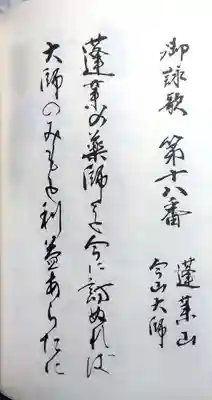 御詠歌 第十八番
蓬莱山
今山大師
蓬莱の薬師と今に訪ぬれば
大師のみもと利益あらたに